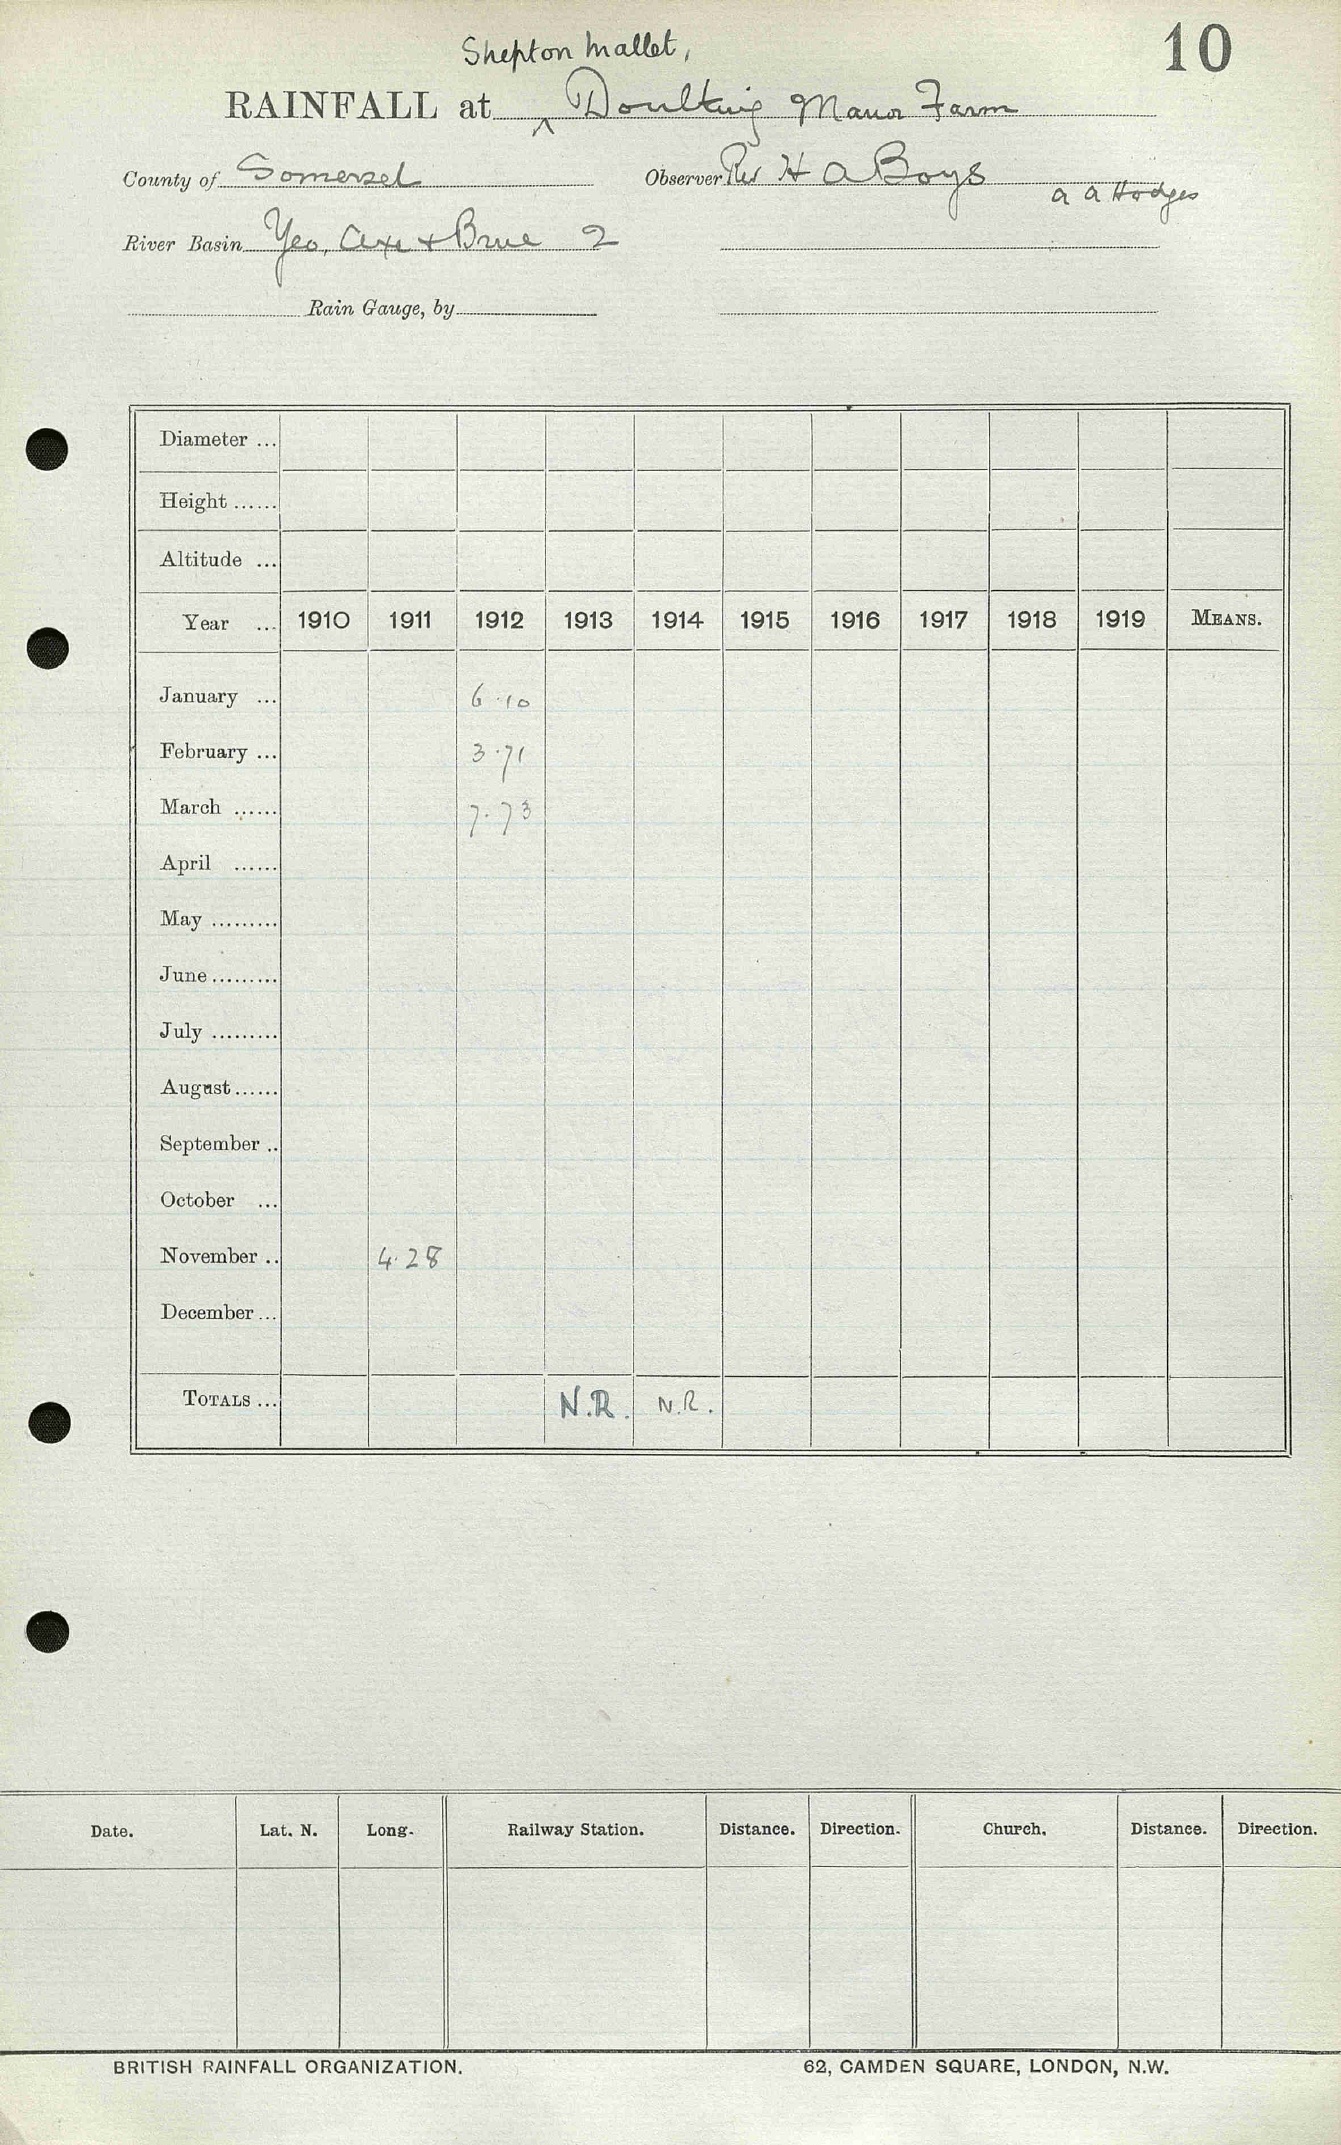 10
Shepton Mallet,
RAINFALL at ^ Doulting Manor Farm
County of Somerset Observer Rev H A Boys
a a Hodges
River Basin Yeo, Axe + Brue 2
Rain Gauge, by
Diameter ...
Height ......
Altitude ...
Year ... 1910 1911 1912 1913 1914 1915 1916 1917 1918 1919 MEANS.
January ... 6.10
February ... 3.71
March ...... 7.73
April ......
May .........
June .........
July .........
August ......
September ..
October ...
November .. 4.28
December ...
TOTALS ... N.R. N.R.
Date. Lat. N. Long. Railway Station. Distance. Direction. Church. Distance. Direction.
BRITISH RAINFALL ORGANIZATION. 62, CAMDEN SQUARE, LONDON, N.W.